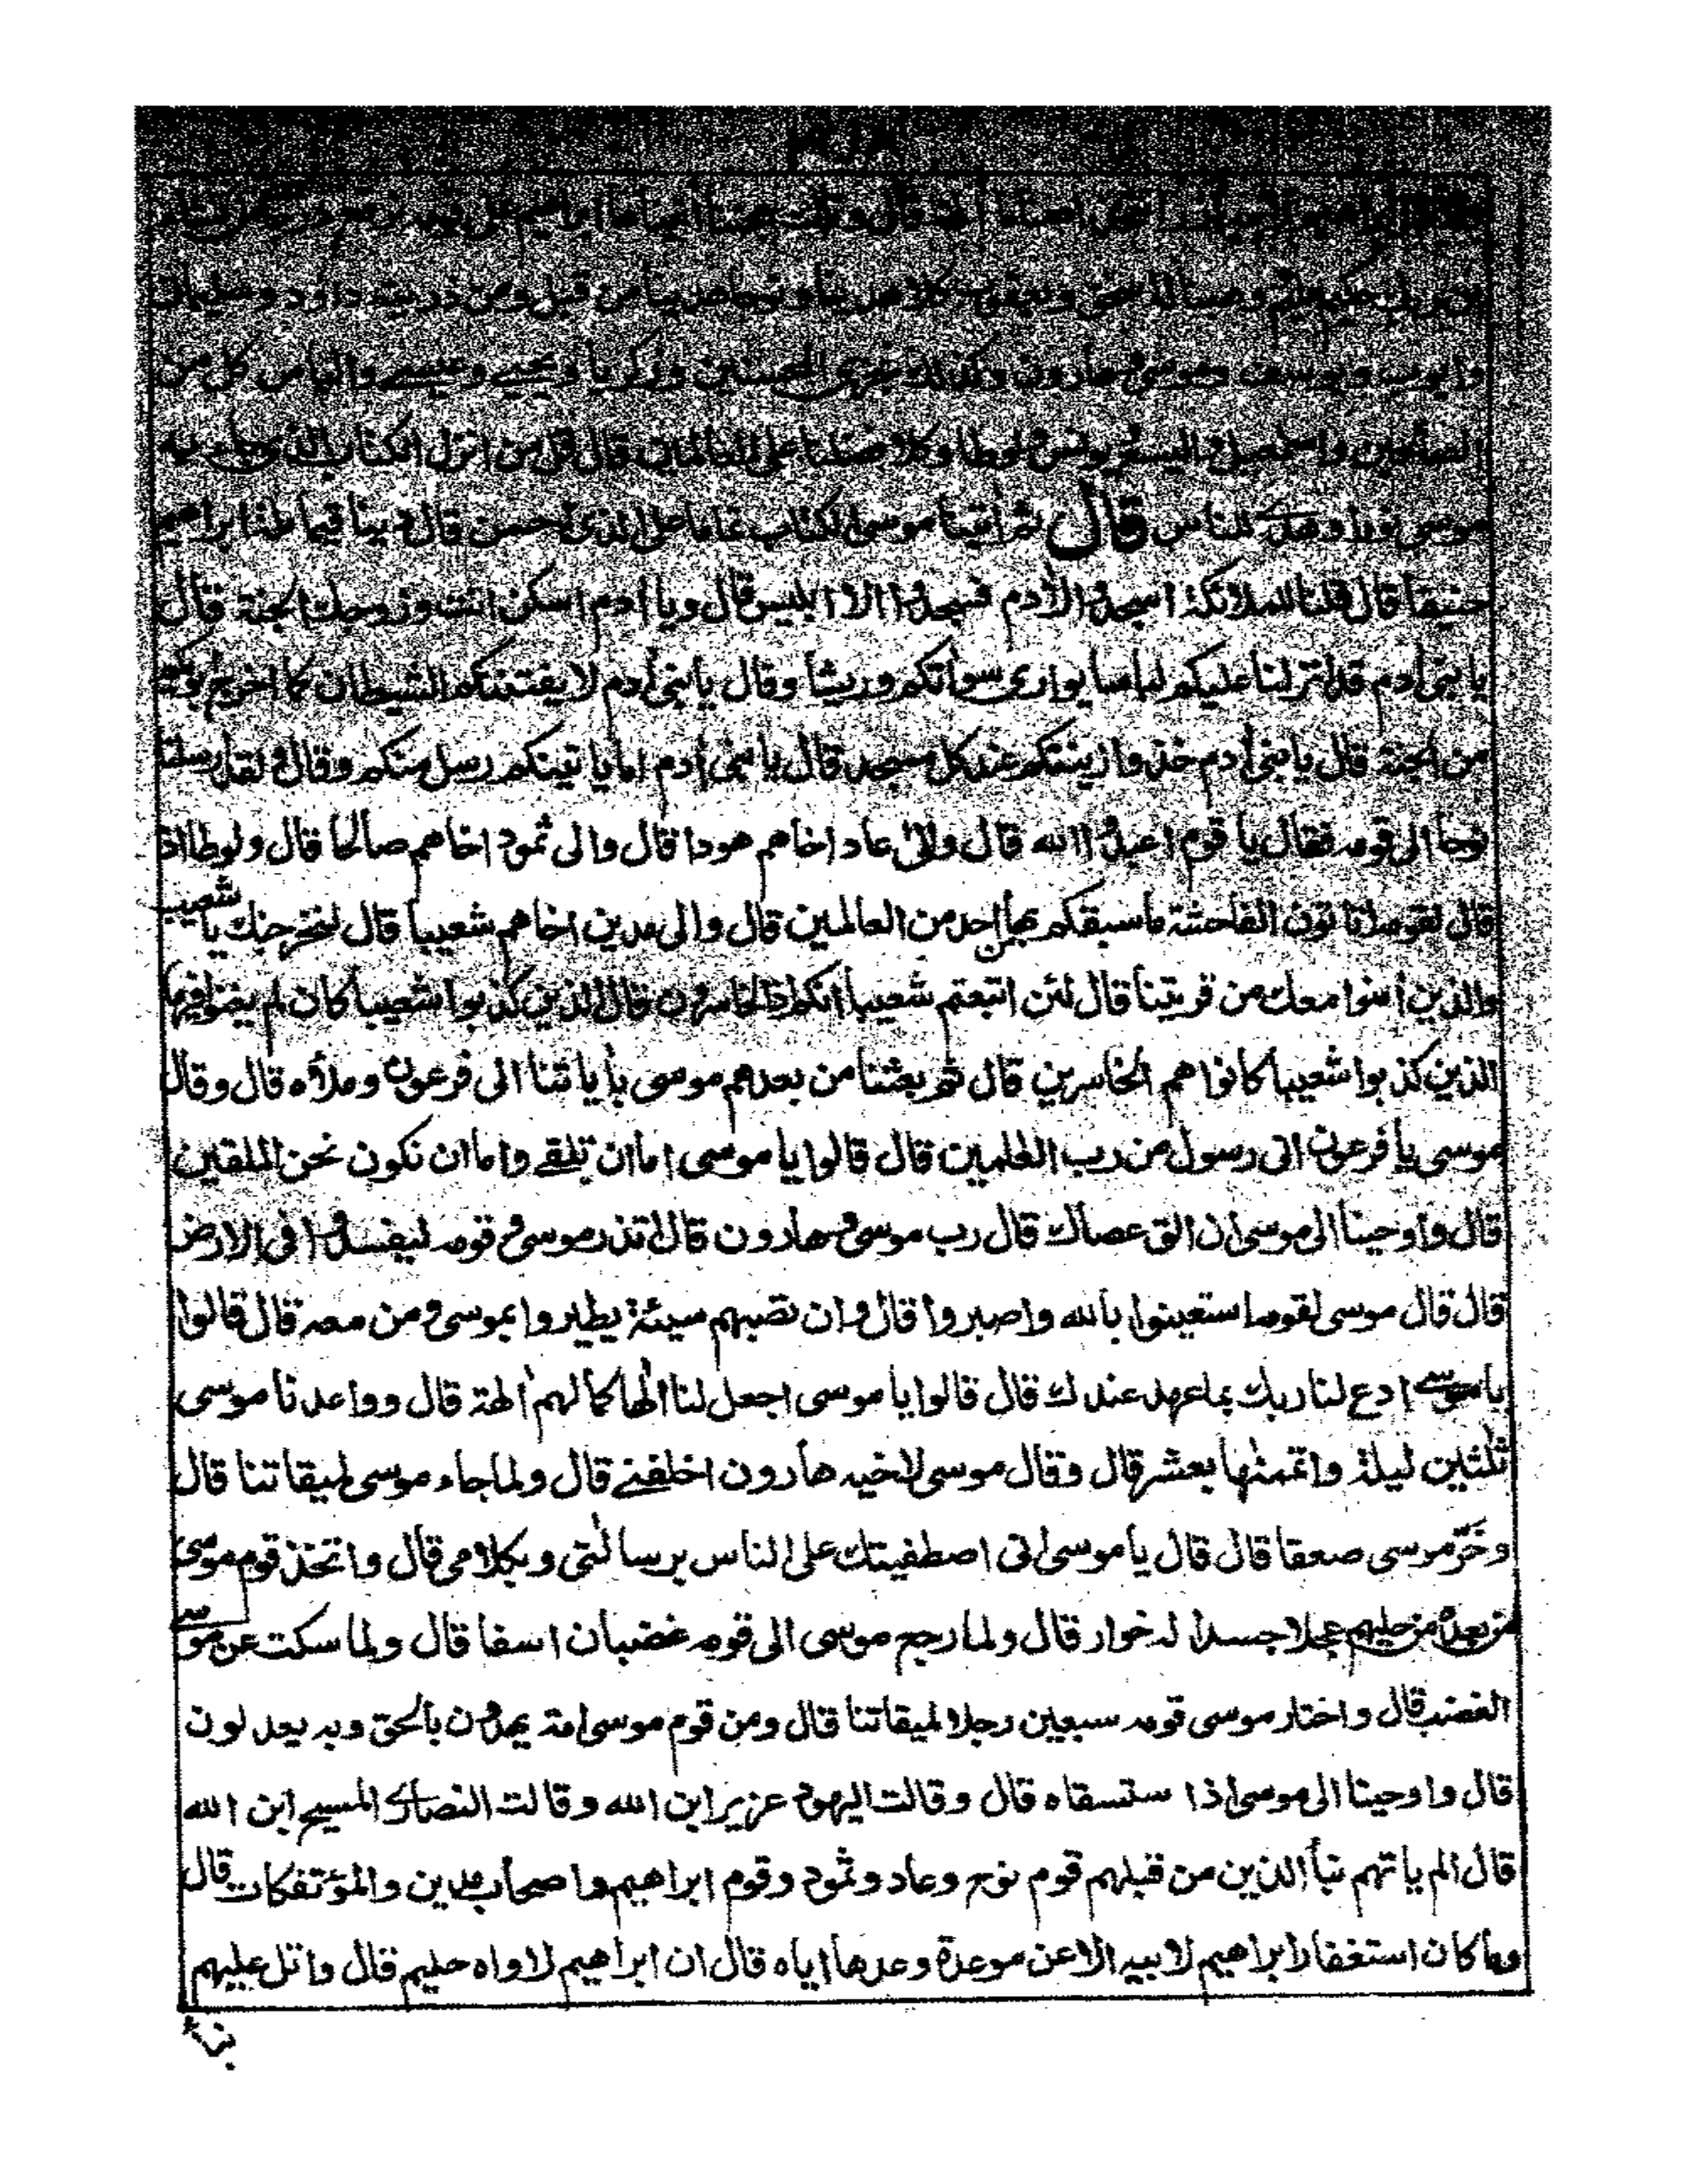 قال وتلك حجتنا اتيناها ابراهيم على قومه نرفع درجات من نشاء
ان ربك حكيم عليم ووهبنا له اسحق ويعقوب كلا هدينا ونوحا هدينا من قبل ومن ذريته داود وسليمان
وايوب ويوسف وموسى وهارون وكذلك نجزى المحسنين وزكريا ويحيى وعيسى والياس كل من
الصالحين واسمعيل واليسع ويونس ولوطا وكلا فضلنا على العالمين قال قل من انزل الكتاب الذى جاء به
موسى نورا وهدى للناس قال ثم أتينا موسى الكتاب تماما على الذى احسن قال دينا قيما ملة ابراهيم
حنيفا قال قلنا للملائكة اسجدوا لأدم فسجدوا الا ابليس قال ويا ادم اسكن انت وزوجك الجنة قال
يا بنى ادم قد انزلنا عليكم لباسا يوارى سوأتكم وريشا وقال يا بنى أدم لا يفتننكم الشيطان كما اخرج ابويكم
من الجنة قال يا بنى أدم خذوا زينتكم عند كل مسجد قال يا بنى أدم اما يا تينكم رسل منكم وقال ولقد ارسلنا
نوحا الى قومه فقال يا قوم اعبدوا الله قال والى عاد اخاهم هودا قال والى ثمود اخاهم صالحا قال ولوطا اذ
قال لقومه اتأتون الفاحشة ما سبقكم بها من احد من العالمين قال والى مدين اخاهم شعيبا قال لنخرجنك يا شعيب
والذين أمنوا معك من قريتنا قال لئن اتبعتم شعيبا انكم اذا لخاسرون قال الذين كذبوا شعيبا كان لم يغنوا فيها
الذين كذبوا شعيبا كانوا هم الخاسرين قال ثم بعثنا من بعدهم موسى بأياتنا الى فرعون وملأه قال وقال
موسى يا فرعون انى رسول من رب العلمين قال قالوا يا موسى اما ان تلقى واما ان نكون نحن الملقين
قال واوحينا الى موسى ان الق عصاك قال رب موسى وهارون قال اتذر موسى وقومه ليفسدوا فى الارض
قال قال موسى لقومه استعينوا بالله واصبروا قال وان تصبهم سيئة يطيروا بموسى ومن معه قال قالوا
يا موسى ادع لنا ربك بما عهد عندك قال قالوا يا موسى اجعل لنا الها كما لهم الهة قال وواعدنا موسى
ثلثين ليلة واتممنها بعشر قال وقال موسى لاخيه هارون اخلفنى قال ولما جاء موسى لميقاتنا قال
وخرّ موسى صعقا قال قال يا موسى انى اصطفيتك على الناس برسالتى وبكلامى قال واتخذ قوم موسى
من بعده من حليهم عجلا جسدا له خوار قال ولما رجع موسى الى قومه غضبان اسفا قال ولما سكت عن موسى
الغضب قال واختار موسى قومه سبعين رجلا لميقاتنا قال ومن قوم موسى امة يهدون بالحق وبه يعدلون
قال واوحينا الى موسى اذا ستسقاه قال وقالت اليهود عزير ابن الله وقالت النصارى المسيح ابن الله
قال الم ياتهم نبأ الذين من قبلهم قوم نوح وعاد وثمود وقوم ابراهيم واصحاب مدين والمؤتفكات قال
وما كان استغفار ابراهيم لابيه الا عن موعدة وعدها اياه قال ان ابراهيم لاواه حليم قال واتل عليهم
نبأ